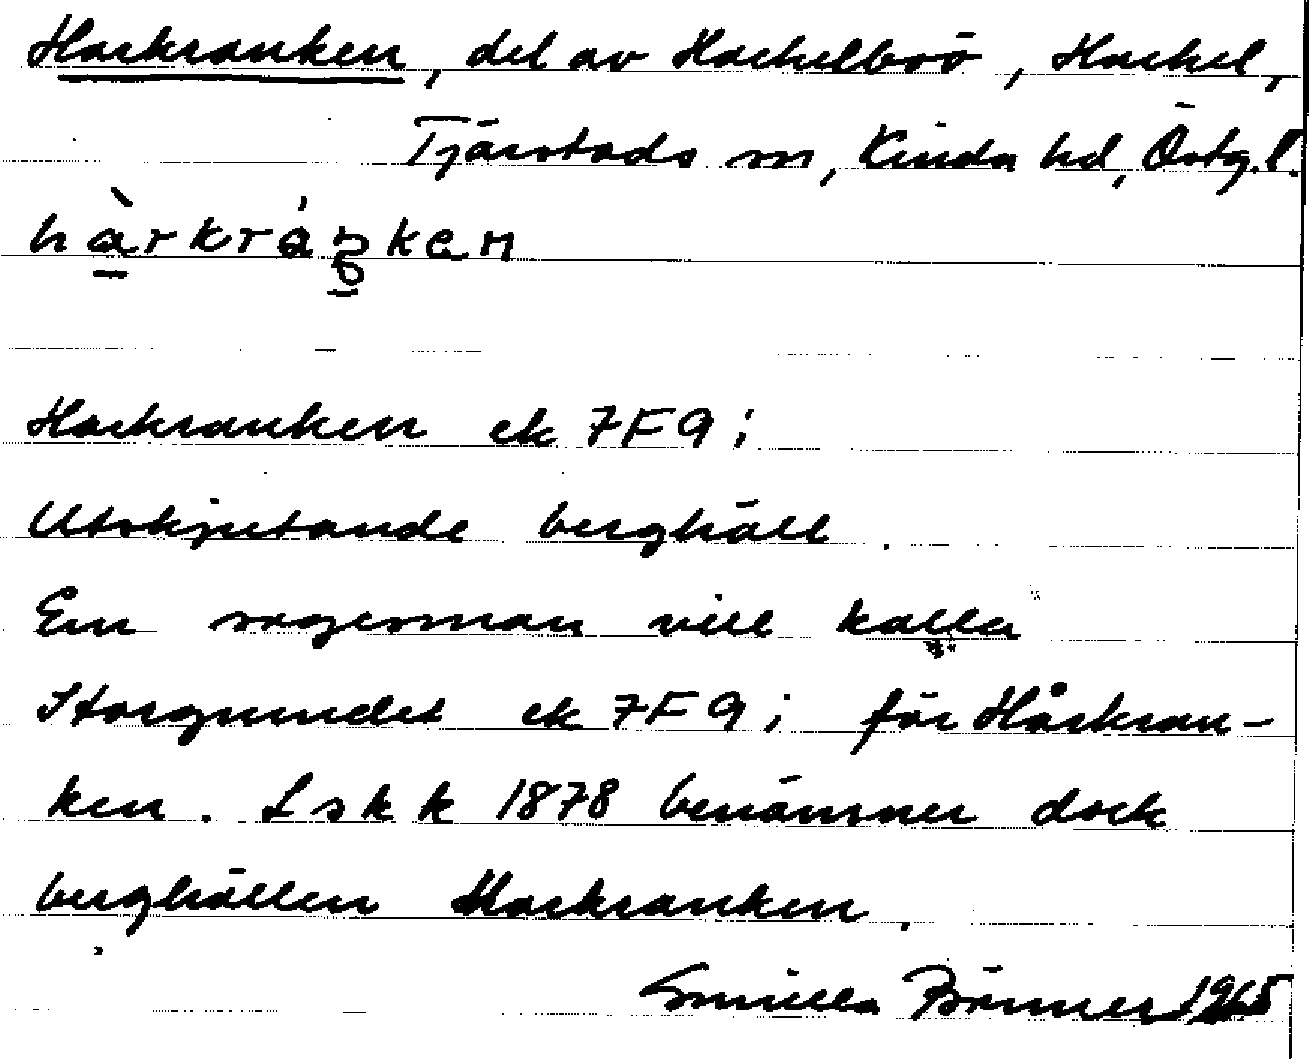 Harkranken, del av Hackelboö, Hackel,
Tjärstads sn, Kinda hd, Östg.l.
hàrkráŋken
Harkranken ek 7F9i
Utskjutande berghäll.
En sagesman vill kalla
Storgrundet ek 7F9i för Hårkran-
ken. Lskk 1878 benämner dock
berghällen Harkranken.
1965